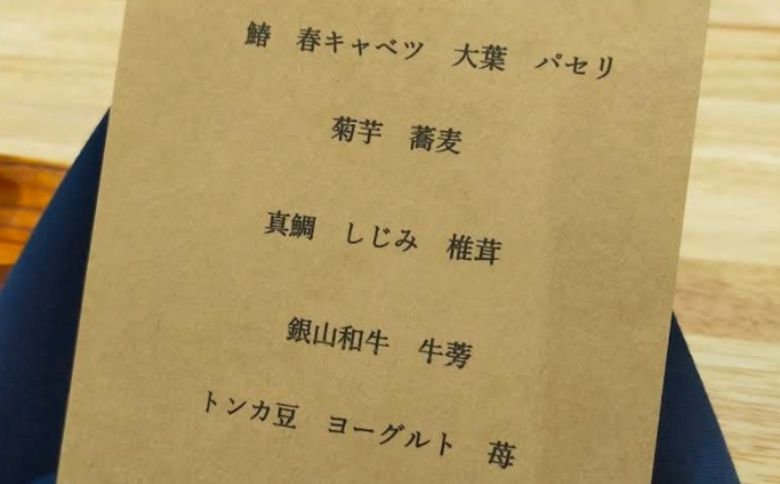 鰆　春キャベツ　大葉　パセリ
菊芋　蕎麦
真鯛　しじみ　椎茸
銀山和牛　牛蒡
トンカ豆　ヨーグルト　苺